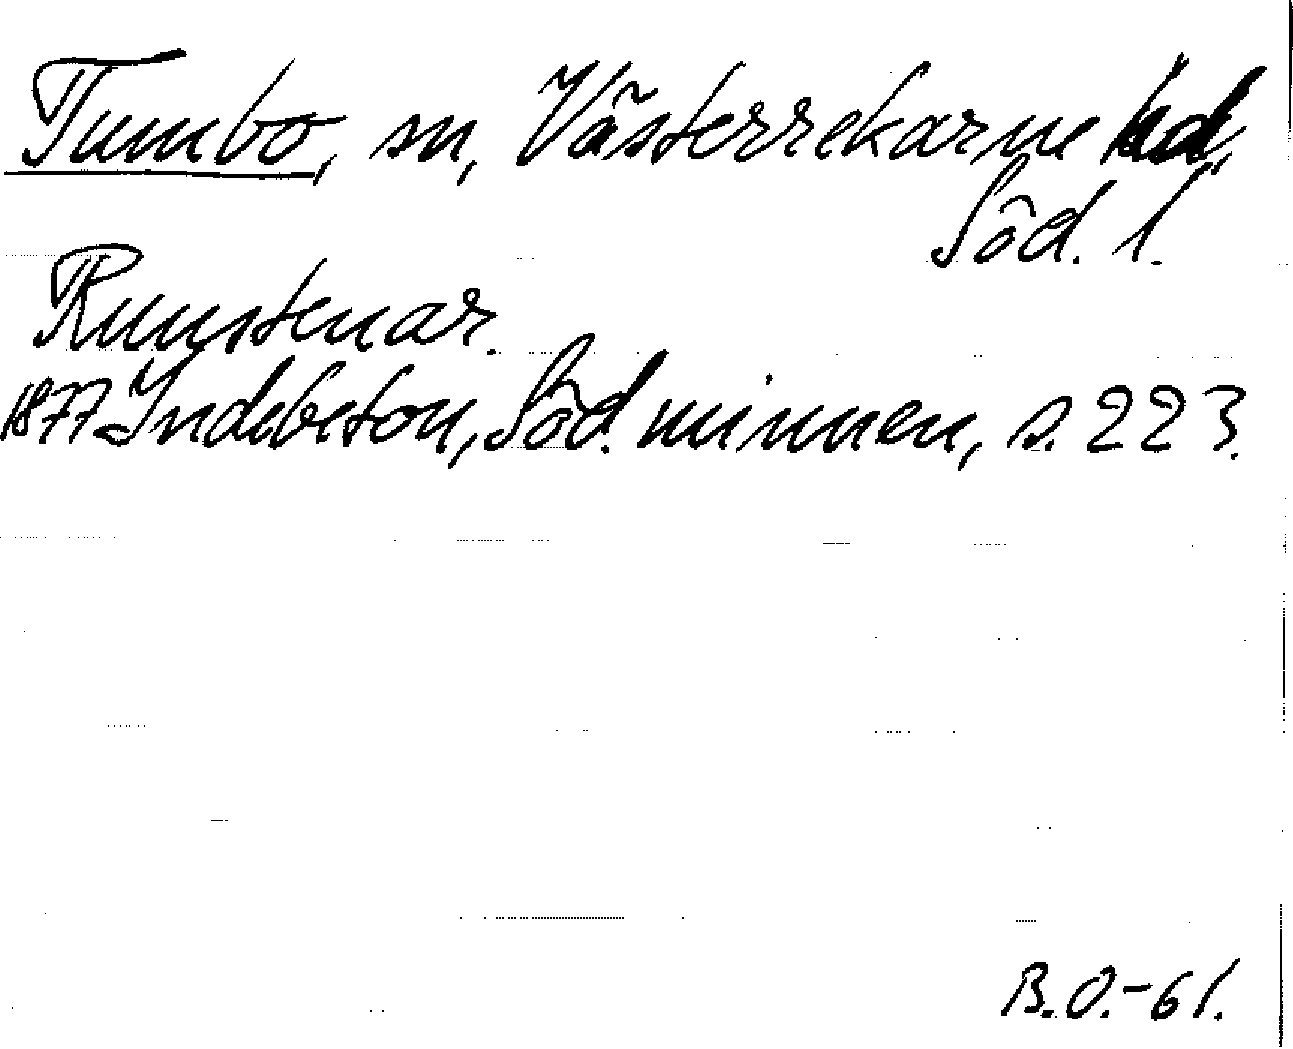 Tumbo, sn, Västerrekarne hd,
Söd. l.
Runstenar.
1877 Indebetou, Söd. minnen, s. 223.
B.O.-61.